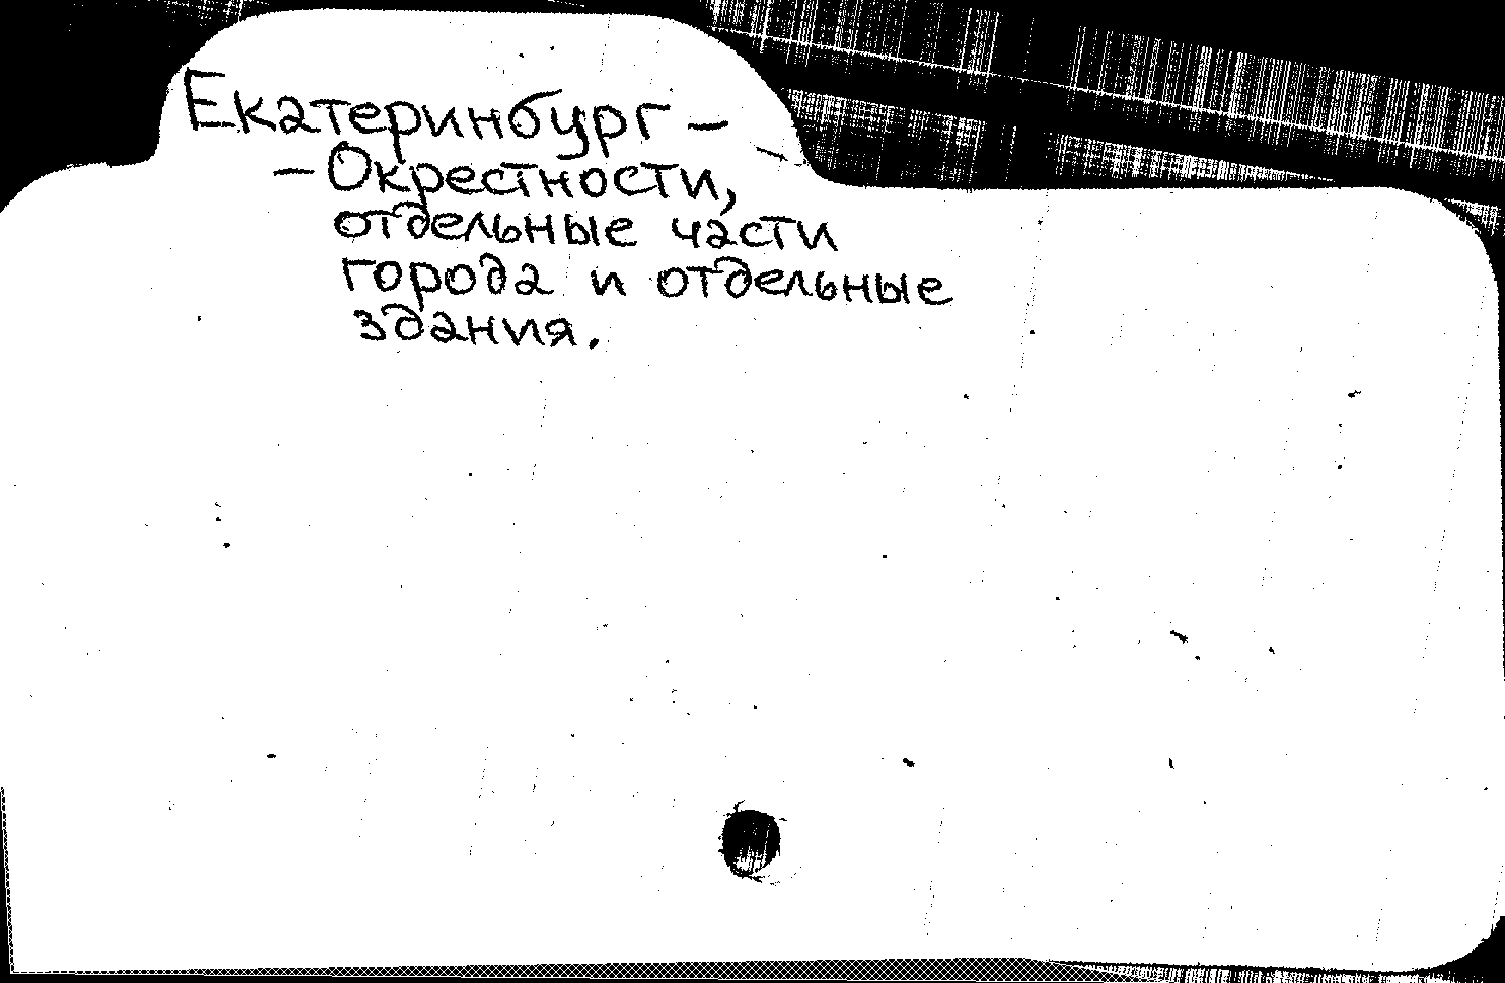 Екатеринбург –
– Окрестности,
отдельные части
города и отдельные
здания.